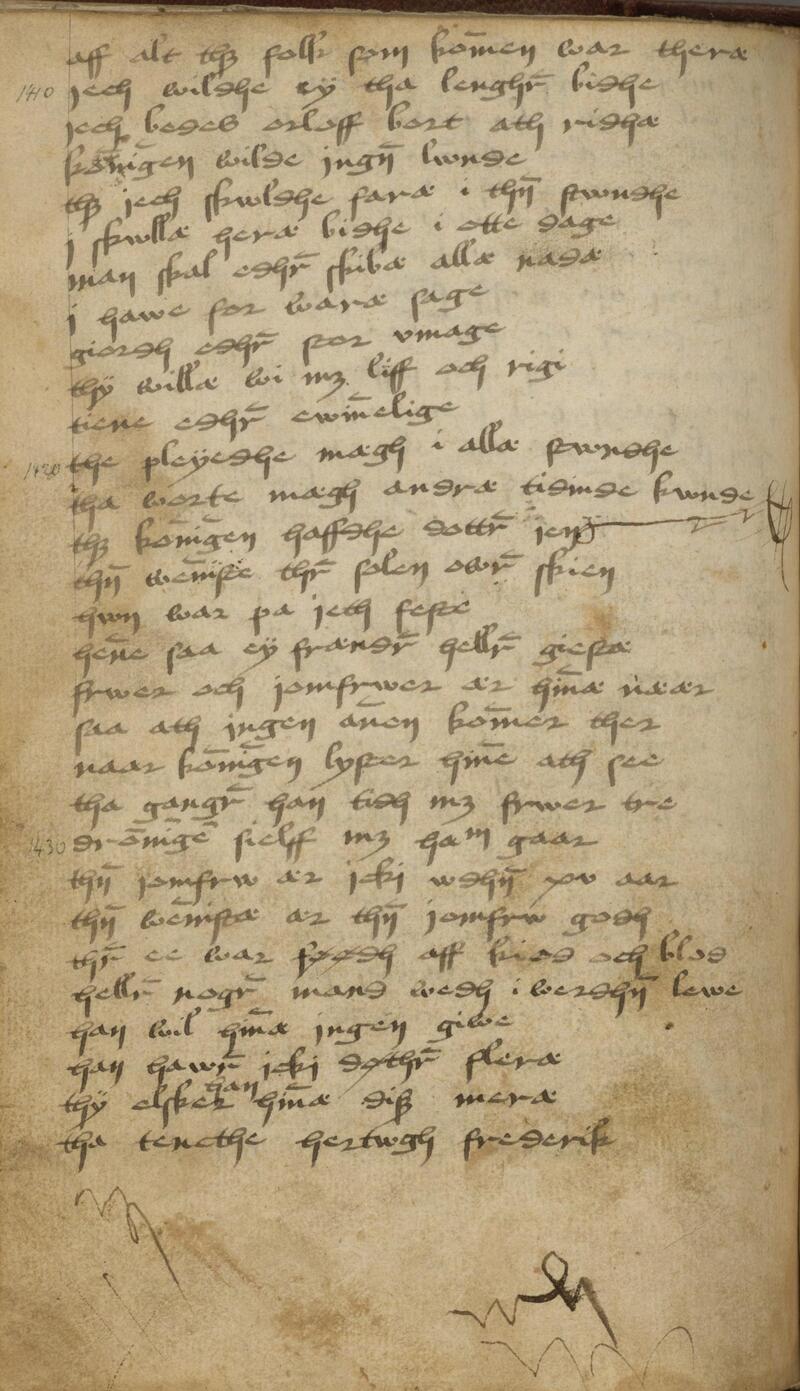 aff alt thꝫ folk som kom̄en war theræ
1410 jech wildhe ey tha lengh̄r bidhe
jech bedes orloff bort ath ridhæ
kon̄īgen wilde jngn̄ lwnde
thꝫ jech skwldhe faræ i thn̄ stwndhe
j skwllæ heræ bidhe i otte dage
man skal edhr̄ skibæ allæ nadæ
j hawe for waræ sage
giordh edhr̄ stor vmage
thy willæ wi mꝫ liff och rigi
tiene edhr̄ ewin̄elige
1420 the pleyedhe mægh i allæ stwndhe
tha worte mægh andræ tidinde kwnde
thꝫ kon̄īgen haffdhe dottr̄ jen
thn̄ wen̄iste thr̄ solen owr̄ skien
hwn war pa jeth feste
hen̄e saa ey frændr̄ hellr̄ giestæ
frwer och jomfrwer ær hin̄æ næær
saa ath jngen an̄en kom̄er ther
naar kon̄īgen lyster hin̄e ath see
tha gangr̄ han tidh mꝫ frwer tre
1430 dron̄īgē sielff mꝫ ham gaar
thn̄ jomfrw ær jcki wdhn̄ xv aar
thn̄ wen̄istæ ær thn̄ jomfrw godh
thr̄ ee war føødh aff kiød och blod
hellr̄ nogr̄ mand wedh i werdhn̄ lewe
han wil hin̄æ jngen giwe
han hawr̄ jcki døthr̄ fleræ
thy elsker han hin̄æ diß meræ
tha tencthe hertwgh frederik